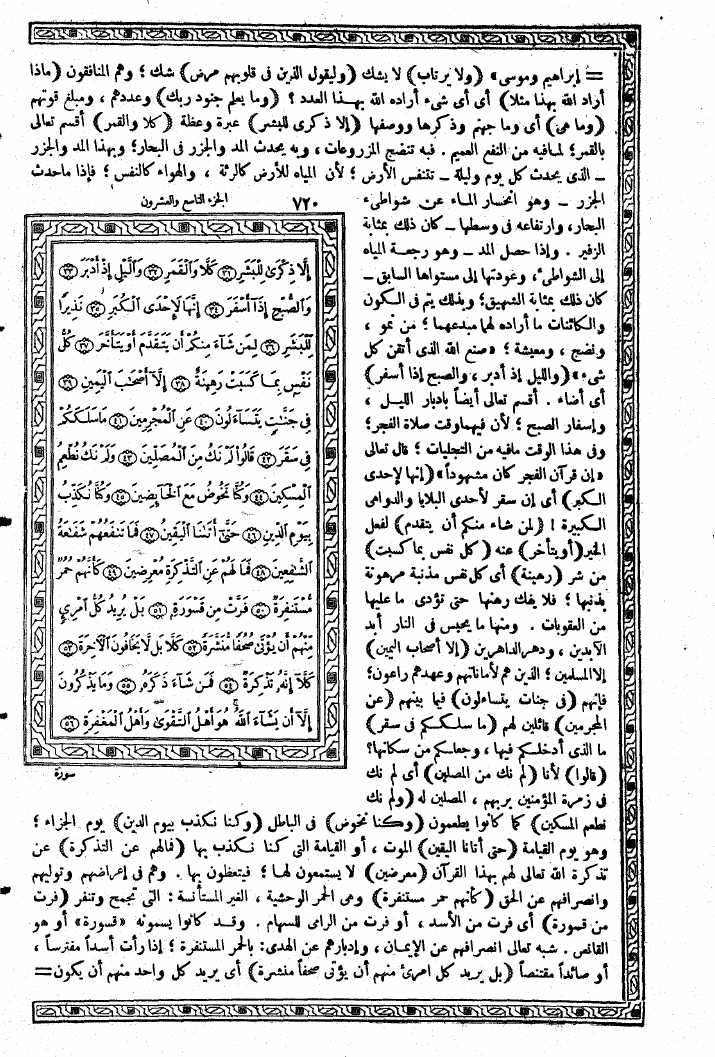 = إبراهيم وموسى» (ولا يرتاب) لا يشك (وليقول الذين فى قلوبهم مرض) شك ؛ وهم المنافقون (ماذا
أراد الله بهذا مثلا) أى أى شىء أراده الله بهـذا العدد ؟ (وما يعلم جنود ربك) وعددهم ، ومبلغ قوتهم
(وما هى) أى وما جهنم وذكرها ووصفها (إلا ذكرى للبشر) عبرة وعظة (كلا والقمر) أقسم تعالى
بالقمر؛ لما فيه من النفع العميم . فبه تنضج المزروعات ، وبه يحدث المد والجزر فى البحار؛ وبهذا المد والجزر
ــ الذى يحدث كل يوم وليلة ــ تتنفس الأرض ؛ لأن المياه للأرض كالرئة ، والهواء كالنفس ؛ فإذا ما حدث
الجزر ــ وهو انحسار الماء عن شواطىء
البحار، وارتفاعه فى وسطها ــ كان ذلك بمثابة
الزفير . وإذا حصل المد ــ وهو رجعة المياه
إلى الشواطىء، وعودتها إلى مستواها السابق ــ
كان ذلك بمثابة الشهيق؛ وبذلك يتم فى الكون
والكائنات ما أراده لها مبدعهما ؛ من نمو ،
ونضج ، ومعيشة ؛ «صنع الله الذى أتقن كل
شىء» (والليل إذ أدبر ، والصبح إذا أسفر)
أى أضاء . أقسم تعالى أيضاً بإدبار الليل ،
وإسفار الصبح ؛ لأن فيهما وقت صلاة الفجر؛
وفى هذا الوقت ما فيه من التجليات ؛ قال تعالى
«إن قرآن الفجر كان مشهوداً» (إنها لإحدى
الكبر) أى إن سقر لأحدى البلايا والدواهى
الكبيرة ! (لمن شاء منكم أن يتقدم) لفعل
الخير (أو يتأخر) عنه (كل نفس بما كسبت)
من شر (رهينة) أى كل نفس مذنبة مرهونة
بذنبها ؛ فلا يفك رهنها حتى تؤدى ما عليها
من العقوبات . ومنها ما يحبس فى النار أبد
الآبدين ، ودهر الداهرين (إلا أصحاب اليمين)
إلا المسلمين ؛ الذين هم لأماناتهم وعهدهم راعون؛
فإنهم (فى جنات يتساءلون) فيما بينهم (عن
المجرمين) قائلين لهم (ما سلككم فى سقر)
ما الذى أدخلكم فيها ، وجعلكم من سكانها؟
(قالوا) لأنا (لم نك من المصلين) أى لم نك
فى زمرة المؤمنين بربهم ، المصلين له (ولم نك
نطعم المسكين) كما كانوا يطعمون (وكنا نخوض) فى الباطل (وكنا نكذب بيوم الدين) يوم الجزاء ؛
وهو يوم القيامة (حتى أتانا اليقين) الموت ، أو القيامة التى كنا نكذب بها (فما لهم عن التذكرة) عن
تذكرة الله تعالى لهم بهذا القرآن (معرضين) لا يستمعون لهـا ؛ فيتعظون بها . وهم فى إعراضهم وتوليهم
وانصرافهم عن الحق (كأنهم حمر مستنفرة) وهى الحمر الوحشية ، الغير المستأنسة : التى تجمح وتنفر (فرت
من قسورة) أى فرت من الأسد ، أو فرت من الرامى للسهام . وقـد كانوا يسمونه «قسورة» أو هو
القانص . شبه تعالى انصرافهم عن الإيمـان ، وإدبارهم عن الهدى: بالحمر المستنفرة ؛ إذا رأت أسداً مفترساً ،
أو صائداً مقتنصاً (بل يريد كل امرئ منهم أن يؤتى صحفاً منشرة) أى يريد كل واحد منهم أن يكون=
٧٢٠ الجزء التاسع والعشرون
إِلَّا ذِكْرَىٰ لِلْبَشَرِ ٣١ كَلَّا وَالْقَمَرِ ٣٢ وَاللَّيْلِ إِذْ أَدْبَرَ ٣٣
وَالصُّبْحِ إِذَا أَسْفَرَ ٣٤ إِنَّهَا لَإِحْدَى الْكُبَرِ ٣٥ نَذِيرًا
لِّلْبَشَرِ ٣٦ لِمَن شَاءَ مِنكُمْ أَن يَتَقَدَّمَ أَوْ يَتَأَخَّرَ ٣٧ كُلُّ
نَفْسٍ بِمَا كَسَبَتْ رَهِينَةٌ ٣٨ إِلَّا أَصْحَابَ الْيَمِينِ ٣٩
فِي جَنَّاتٍ يَتَسَاءَلُونَ ٤٠ عَنِ الْمُجْرِمِينَ ٤١ مَا سَلَكَكُمْ
فِي سَقَرَ ٤٢ قَالُوا لَمْ نَكُ مِنَ الْمُصَلِّينَ ٤٣ وَلَمْ نَكُ نُطْعِمُ
الْمِسْكِينَ ٤٤ وَكُنَّا نَخُوضُ مَعَ الْخَائِضِينَ ٤٥ وَكُنَّا نُكَذِّبُ
بِيَوْمِ الدِّينِ ٤٦ حَتَّىٰ أَتَانَا الْيَقِينُ ٤٧ فَمَا تَنفَعُهُمْ شَفَاعَةُ
الشَّافِعِينَ ٤٨ فَمَا لَهُمْ عَنِ التَّذْكِرَةِ مُعْرِضِينَ ٤٩ كَأَنَّهُمْ حُمُرٌ
مُّسْتَنفِرَةٌ ٥٠ فَرَّتْ مِن قَسْوَرَةٍ ٥١ بَلْ يُرِيدُ كُلُّ امْرِئٍ
مِّنْهُمْ أَن يُؤْتَىٰ صُحُفًا مُّنَشَّرَةً ٥٢ كَلَّا بَل لَّا يَخَافُونَ الْآخِرَةَ ٥٣
كَلَّا إِنَّهُ تَذْكِرَةٌ ٥٤ فَمَن شَاءَ ذَكَرَهُ ٥٥ وَمَا يَذْكُرُونَ
إِلَّا أَن يَشَاءَ اللَّهُ هُوَ أَهْلُ التَّقْوَىٰ وَأَهْلُ الْمَغْفِرَةِ ٥٦
سورة